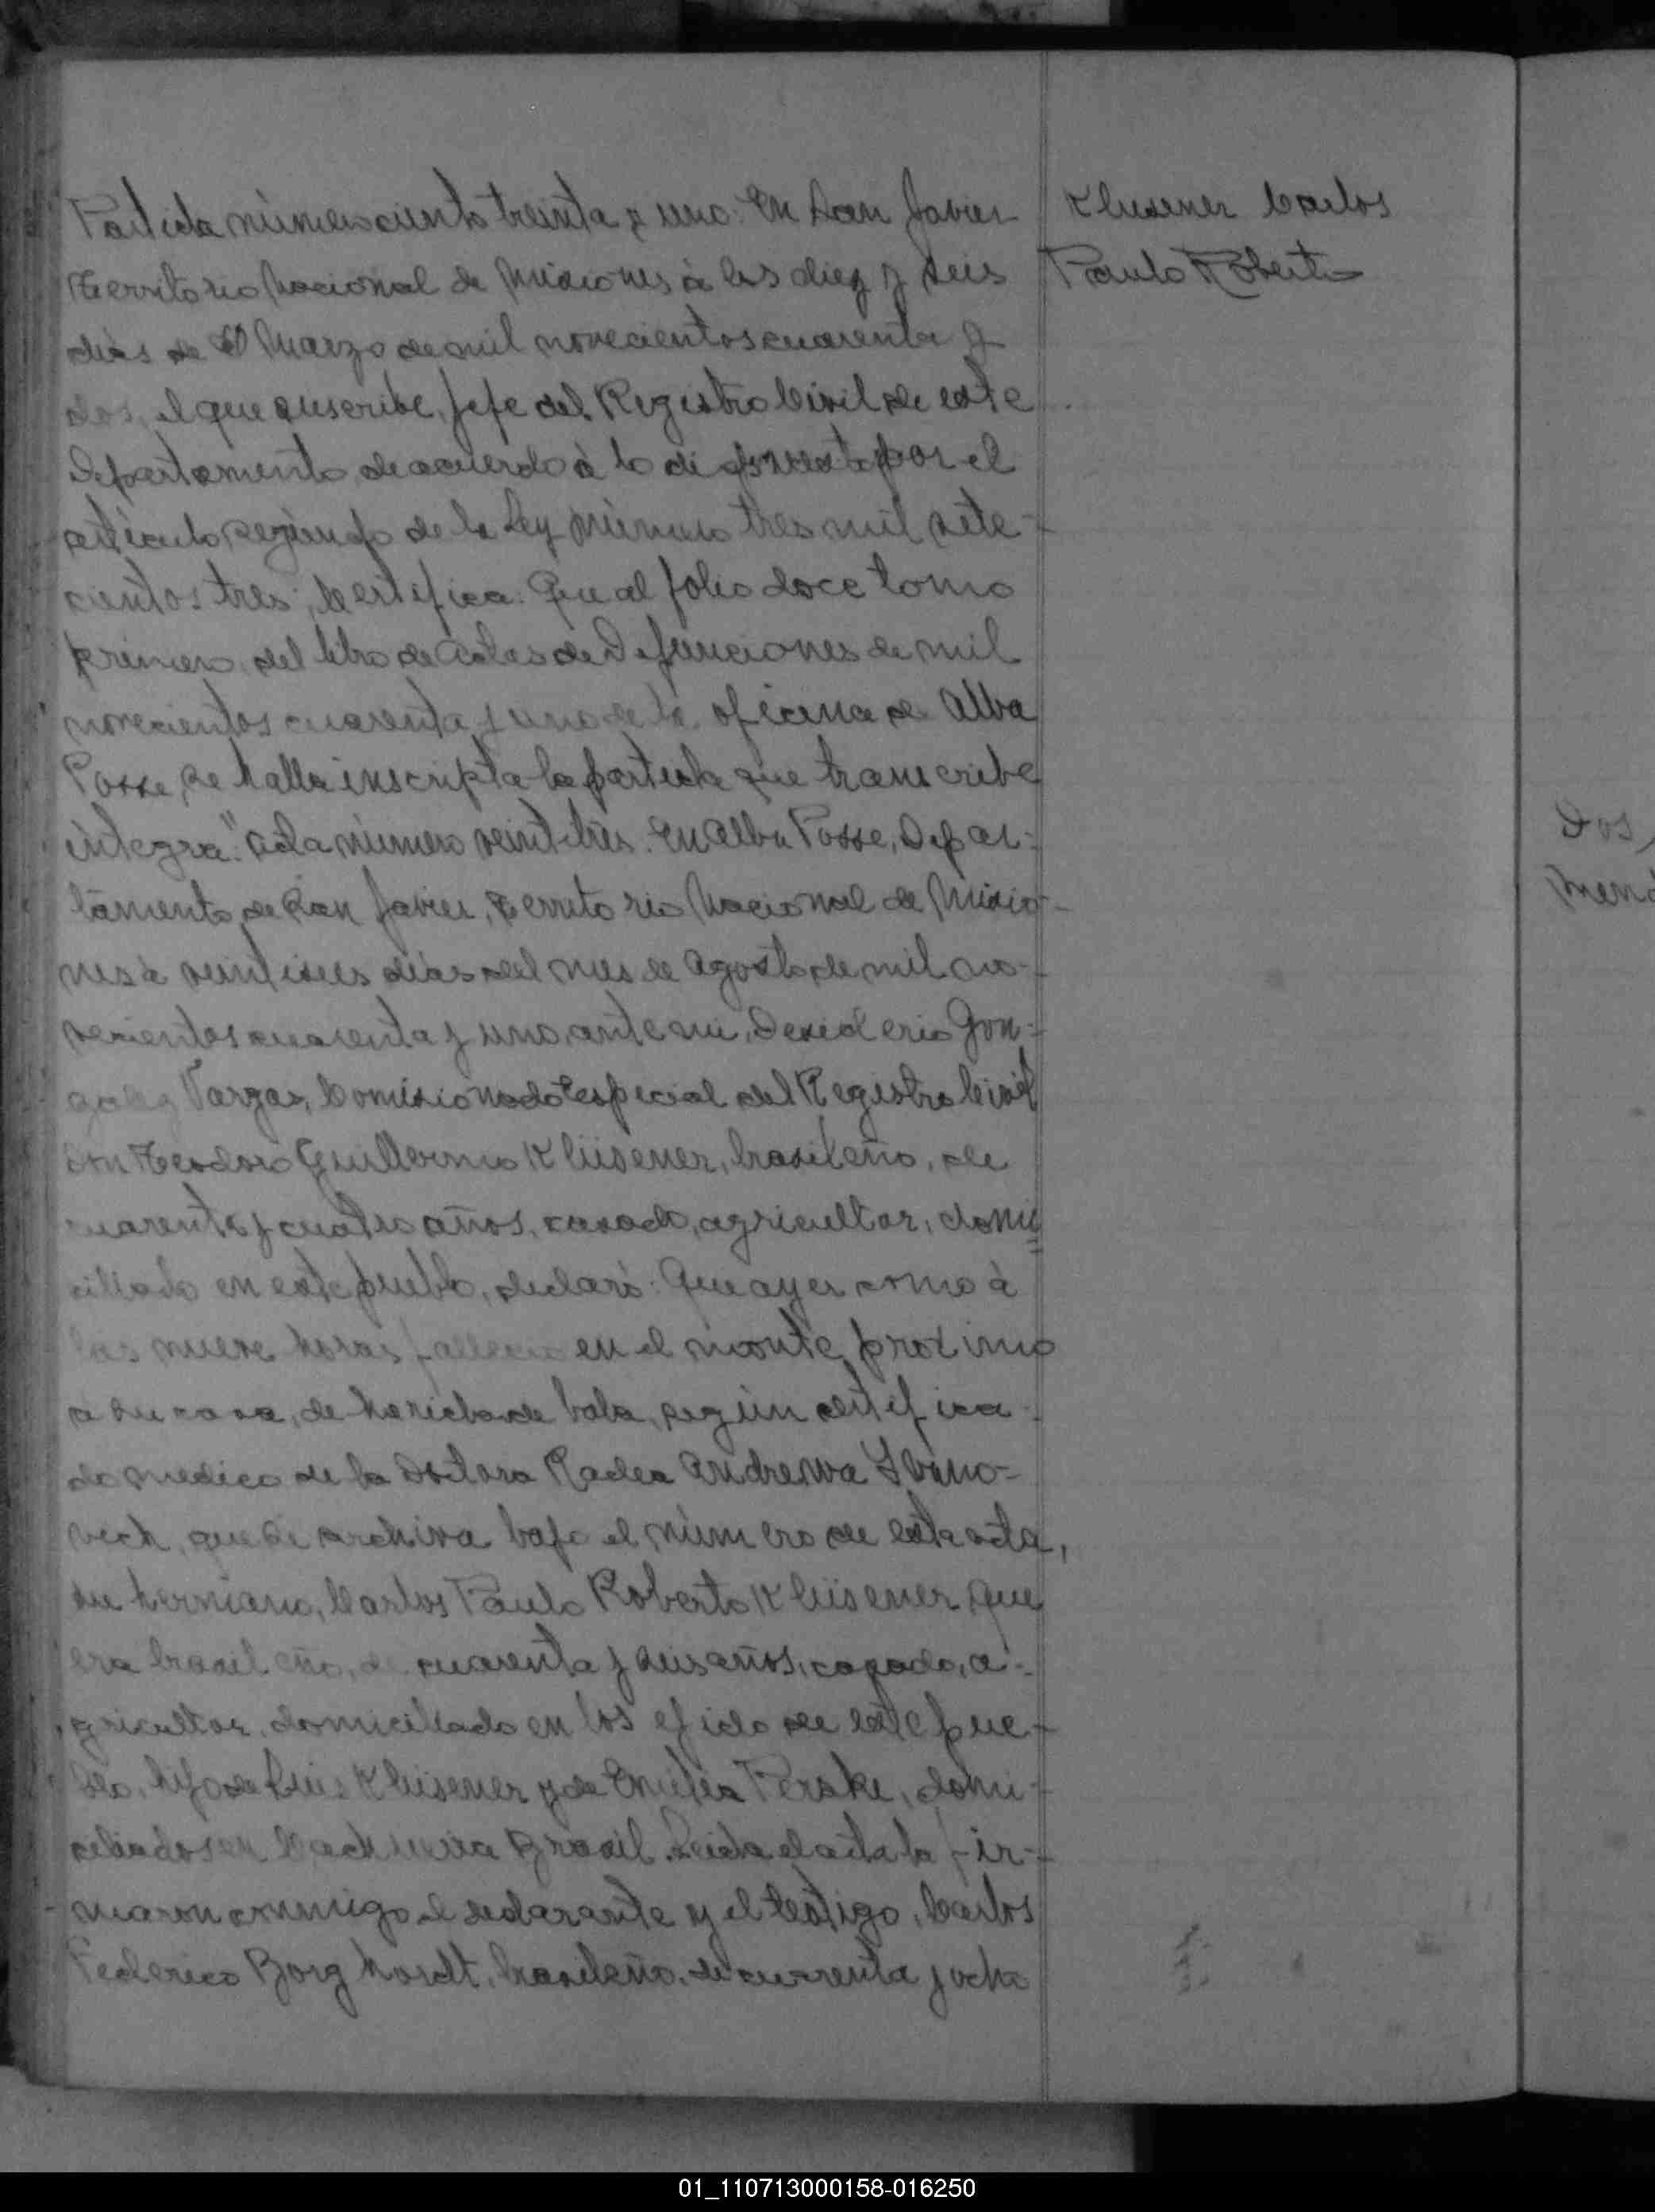 Partida número ciento treinta y uno: En San Javier
Territorio Nacional de Misiones à los diez y seis
dias de Marzo de mil novecientos cuarenta y
dos, el que suscribe, Jefe del Registro Civil de este
Departamento, de acuerdo à lo dispuesto por el
artículo segundo de la Ley número tres mil sete-
cientos tres; Certifica: Que al folio doce tomo
primero del libro de Actas de Defunciones de mil
novecientos cuarenta y uno de la oficina de Alba
Posse, se halla inscripta la partida que transcribe
integra: "Acta número veintitrés. En Alba Posse, Depar-
tamento de San Javier, Territorio Nacional de Misio-
nes à veintiseis dias del mes de Agosto de mil no-
vecientos cuarenta y uno, ante mi, Desiderio Gon-
zalez Vargas, Comisionado Especial del Registro Civil
don Teodoro Guillermo Klüsener, brasileño, de
cuarenta y cuatro años, casado, agricultor, domi
ciliado en este pueblo, declaró: Que ayer como à
las nueve horas falleció en el monte proximo
a su casa, de herida de bala, según certifica-
do medico de la Doctora Radea Andrewa Ivano-
vech, que se archiva bajo el número de esta acta,
su hermano, Carlos Paulo Roberto Klüsener, que
era brasileño, de cuarenta y seis años, casado, a-
gricultor, domiciliado en los ejido de este pue-
blo, hijo de Luis Klüsener y de Emilia Perske, domi-
ciliados en Brasil. Leida el acta la fir-
maron conmigo el declarante y el testigo, Carlos
Federico Borghardt, brasileño, de cuarenta y ocho
Klusener Carlos
Paulo Roberto
Dos,
01_110713000158-016250